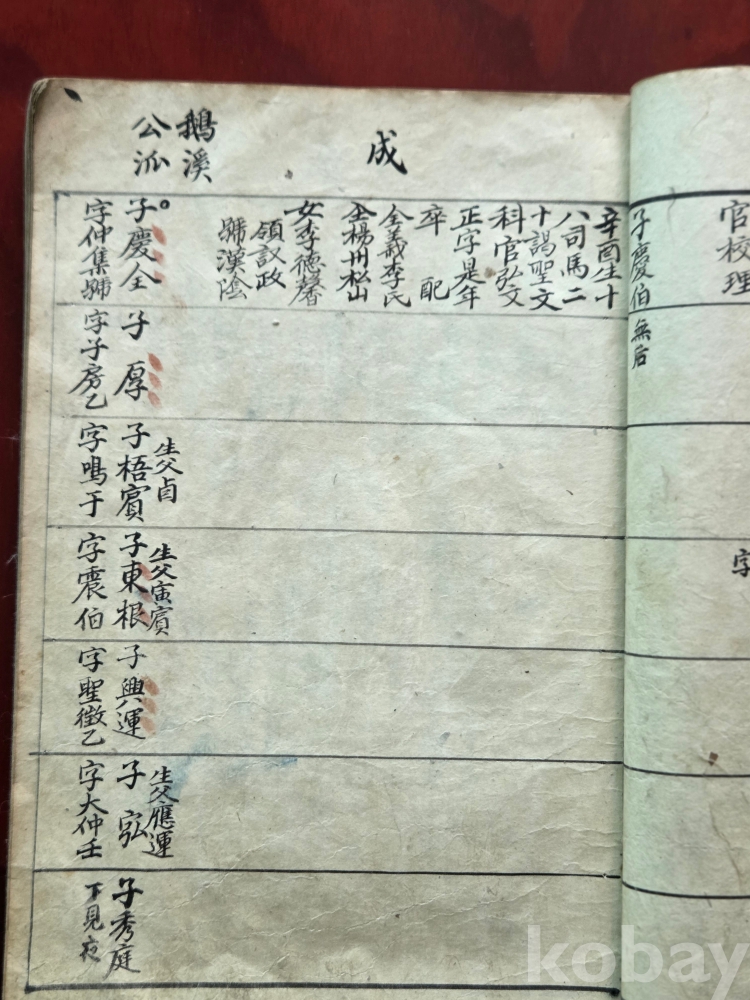 官校理
子慶伯 無后
字
成
鵝溪
公派
辛酉生十
八司馬二
十謁聖文
科官弘文
正字是年
卒 配
全義李氏
楊州松山
女李德馨
領議政
號漢陰
子慶全
字仲集號
子 厚
字子房乙
生父卣
子梧賓
字鳴于
生父寅賓
子東根
字震伯
子興運
字聖徵乙
生父應運
子 宖
字大仲壬
子秀庭
下見夜
kobay